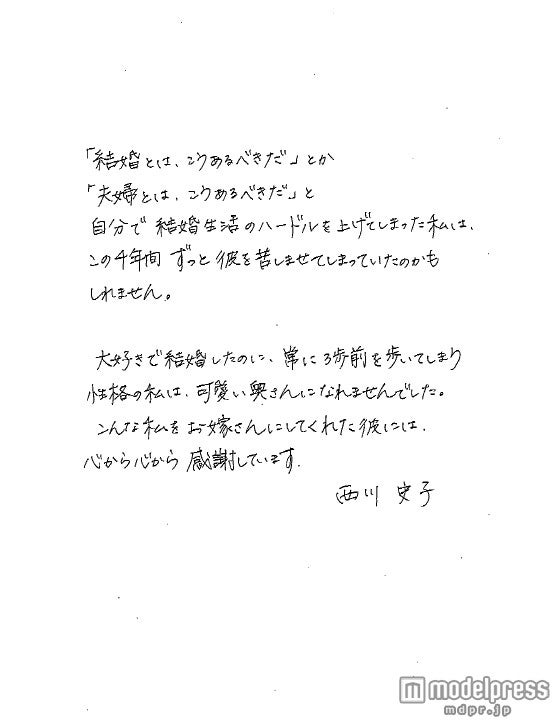 「結婚とは、こうあるべきだ」とか
「夫婦とは、こうあるべきだ」と
自分で結婚生活のハードルを上げてしまった私は、
この4年間ずっと彼を苦しませてしまっていたのかも
しれません。
大好きで結婚したのに、常に3歩前を歩いてしまう
性格の私は、可愛い奥さんになれませんでした。
こんな私をお嫁さんにしてくれた彼には、
心から心から感謝しています。
西川 史子
modelpress
mdpr.jp